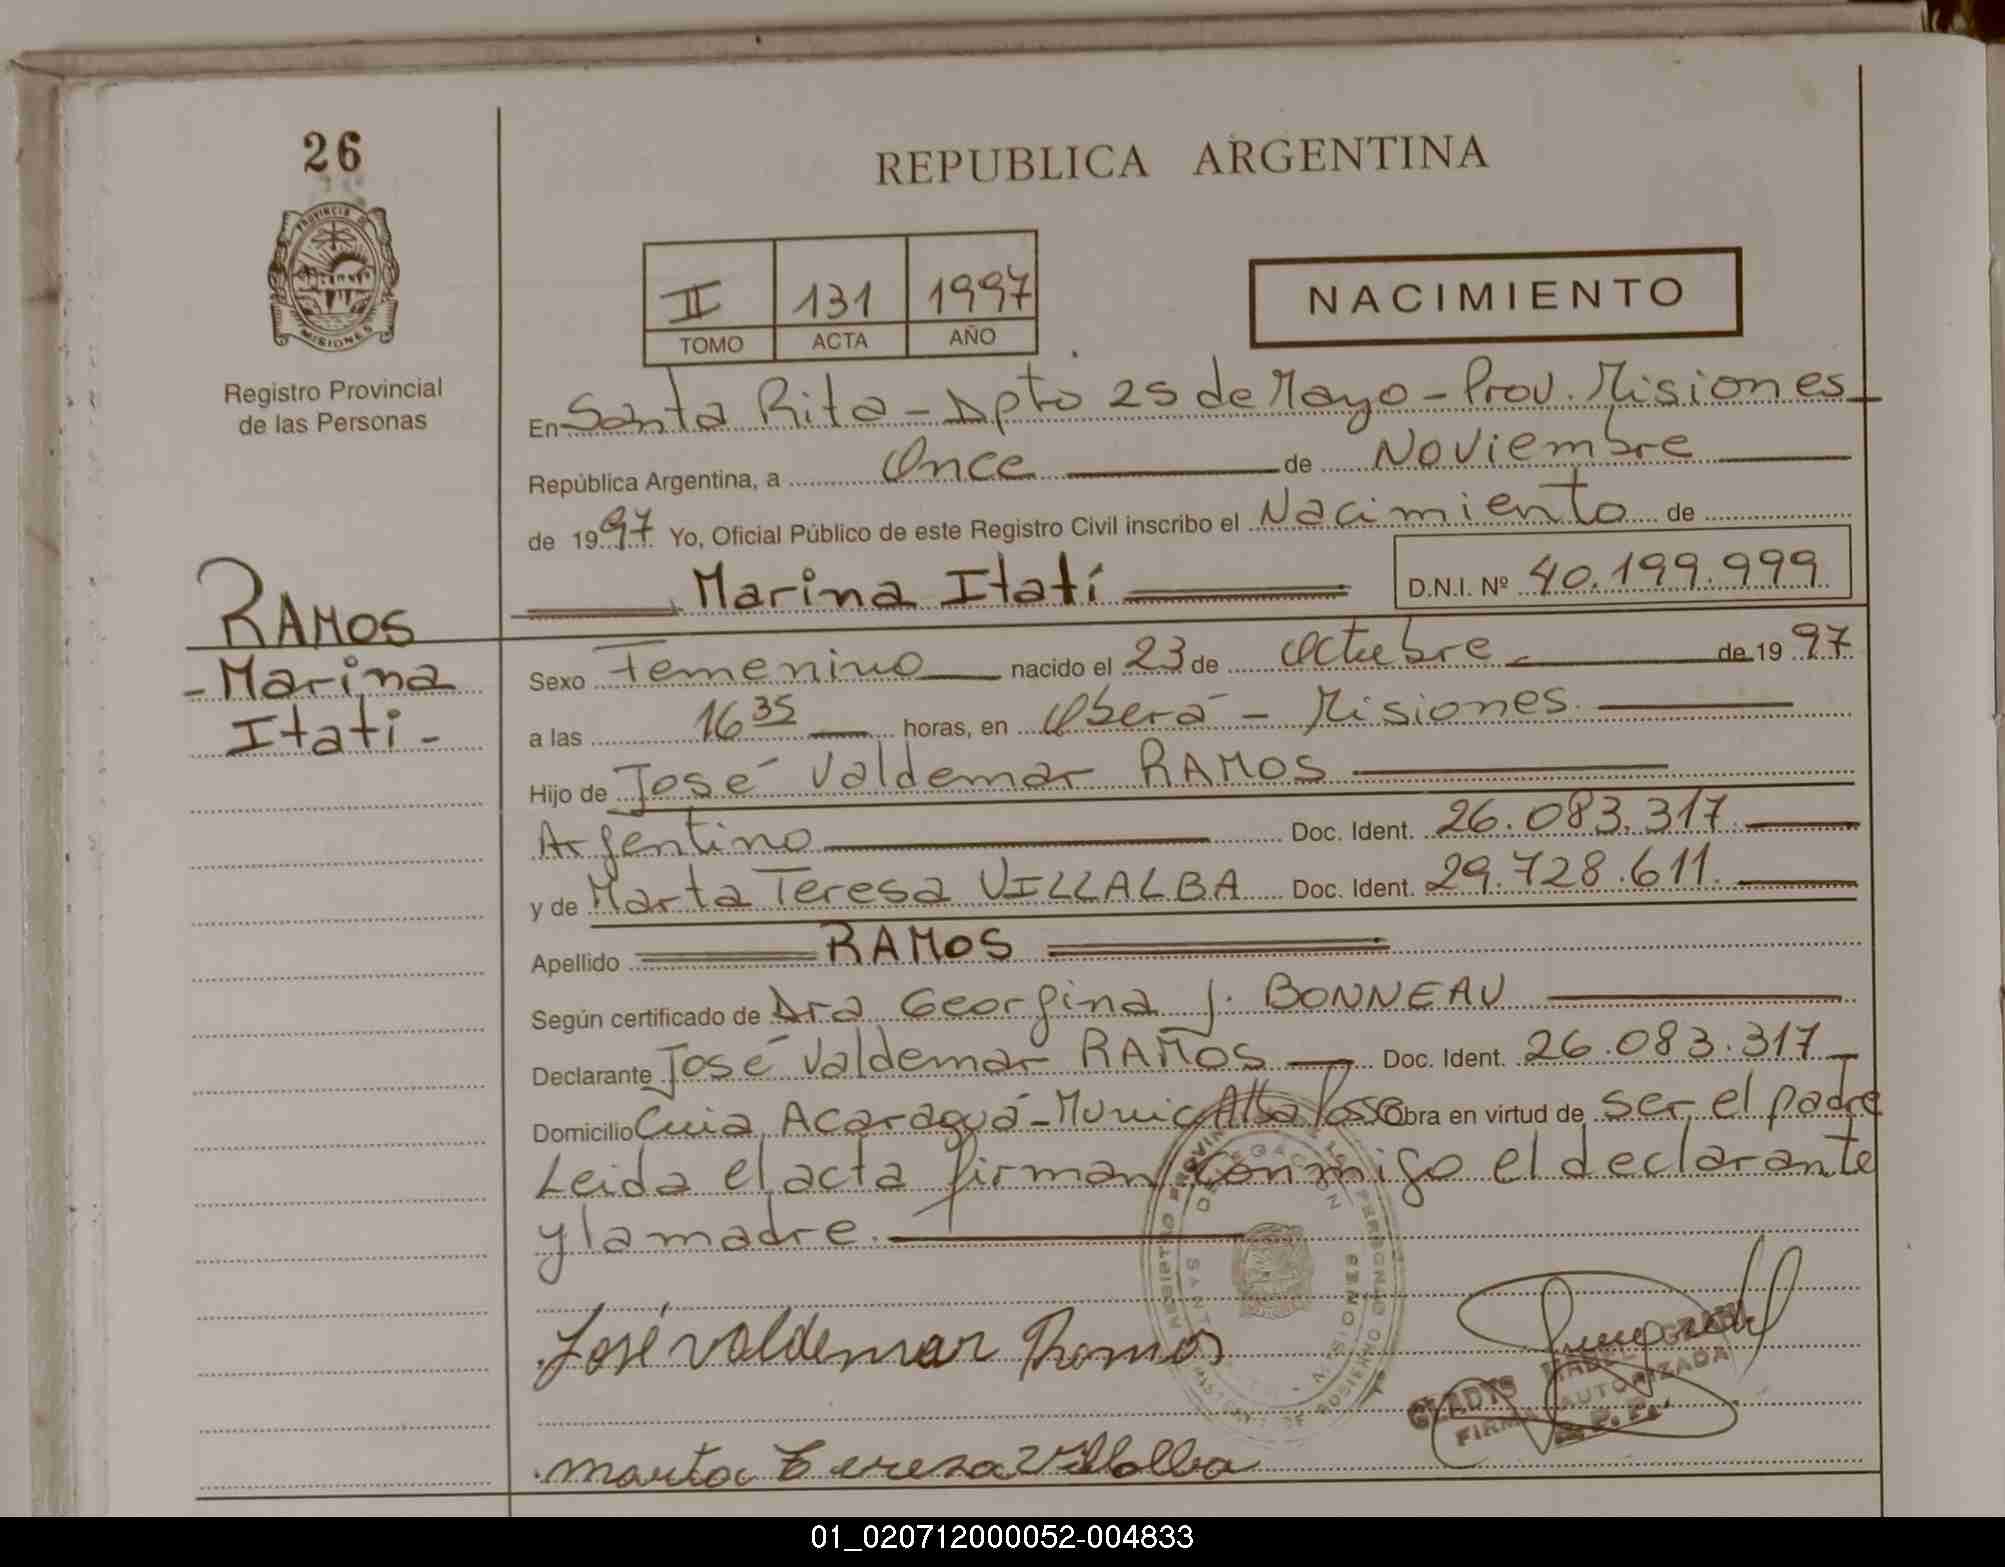 26
PROVINCIA DE
MISIONES
Registro Provincial
de las Personas
REPUBLICA ARGENTINA
II 131 1997
TOMO ACTA AÑO
NACIMIENTO
En Santa Rita - Dpto 25 de Mayo - Prov. Misiones
República Argentina, a Once de Noviembre
de 1997 Yo, Oficial Público de este Registro Civil inscribo el Nacimiento de
Marina Itatí D.N.I. Nº 40.199.999
RAMOS
- Marina
Itati -
Sexo Femenino nacido el 23 de Octubre de 1997
a las 16 35 horas, en Oberá - Misiones
Hijo de José Valdemar RAMOS
Argentino Doc. Ident. 26.083.317
y de Marta Teresa VILLALBA Doc. Ident. 29.728.611
Apellido RAMOS
Según certificado de Dra Georgina J. BONNEAU
Declarante José Valdemar RAMOS Doc. Ident. 26.083.317
Domicilio Cuia Acaraguá - Munic Alba Posse Obra en virtud de ser el padre
Leida el acta firman conmigo el declarante
y la madre.
José Valdemar Ramos
GLADYS MABEL
FIRMA AUTORIZADA
R. P. P.
Marta Teresa Villalba
01_020712000052-004833